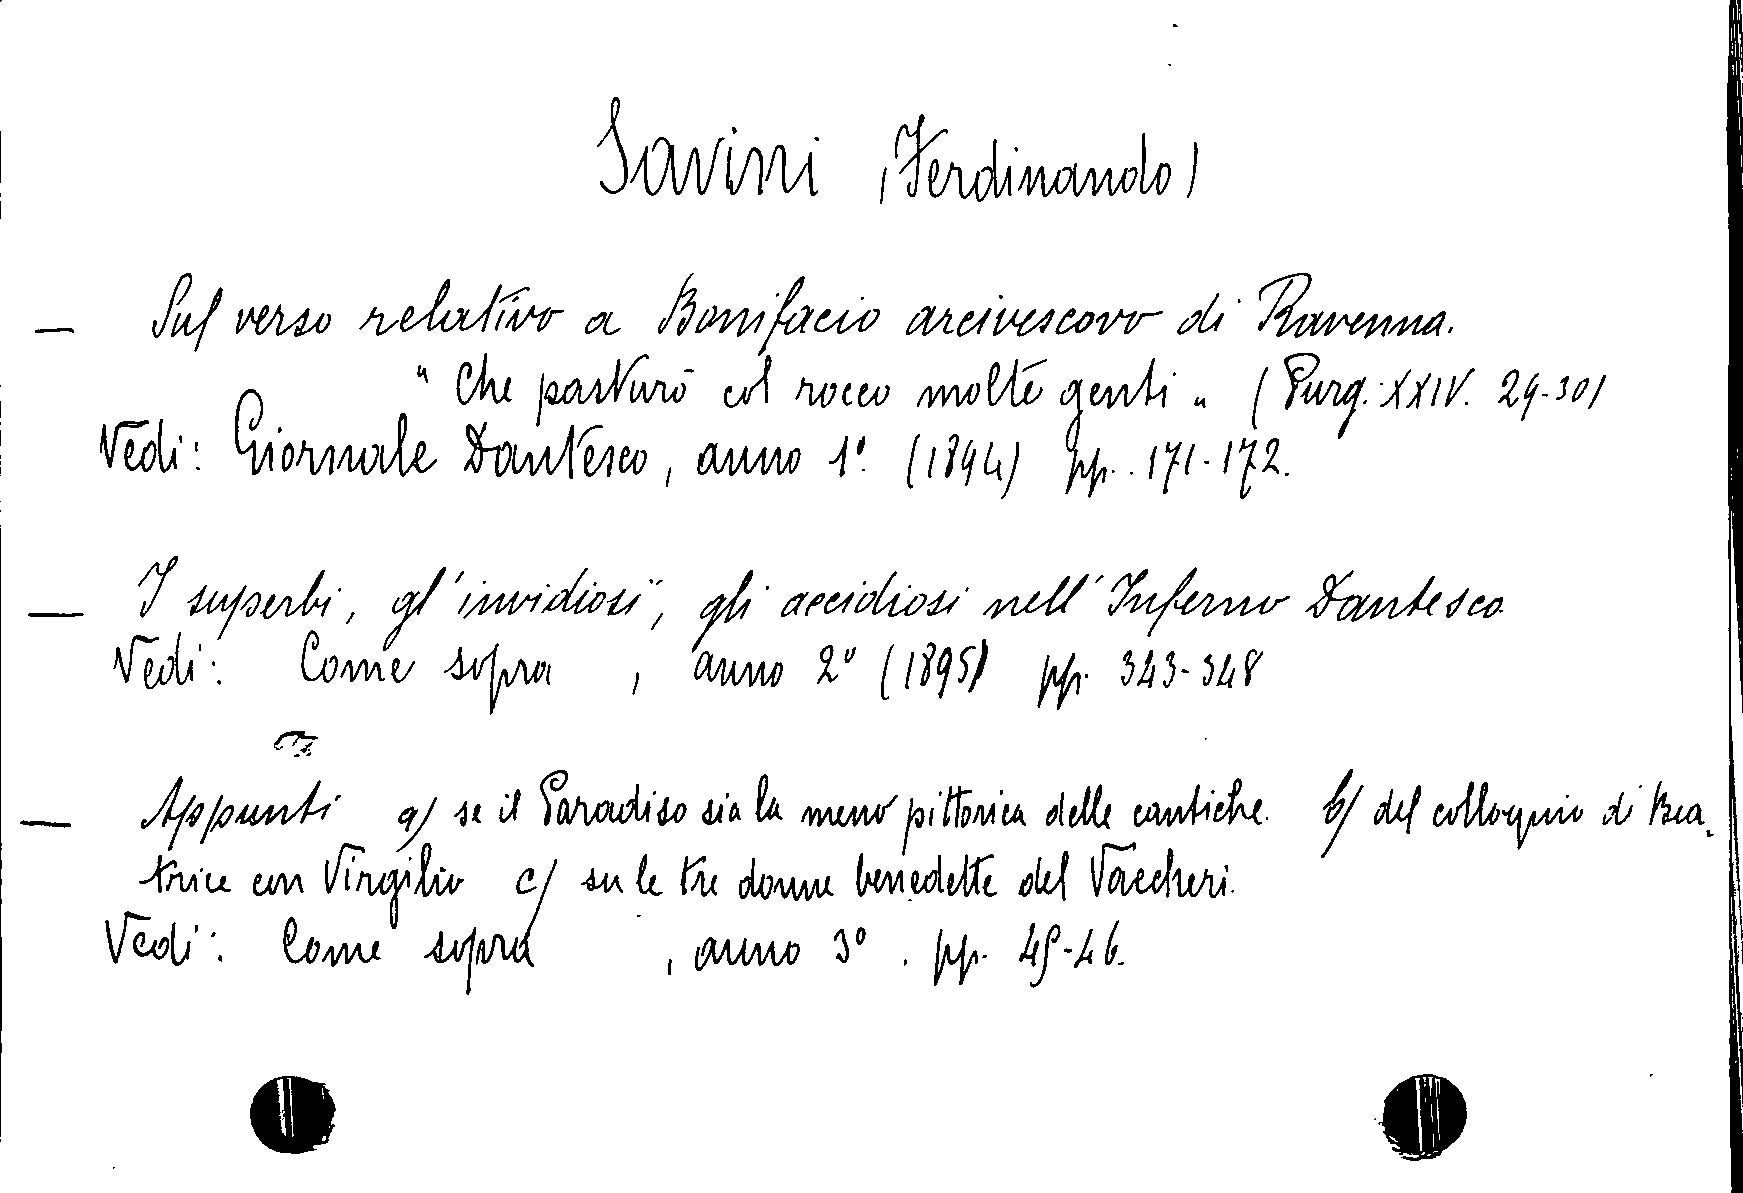 Savini (Ferdinando)
— Sul verso relativo a Bonifacio arcivescovo di Ravenna.
" Che pasturò col rocco molte genti " (Purg. XXIV. 29-30)
Vedi: Giornale Dantesco, anno 1º. (1894) pp. 171-172.
— I superbi, gl'invidiosi, gli accidiosi nell'Inferno Dantesco
Vedi: Come sopra , anno 2º (1895) pp. 343-348
— Appunti a/ se il Paradiso sia la meno pittorica delle cantiche. b/ del colloquio di Bea-
trice con Virgilio c/ su le tre donne benedette del Vaccheri.
Vedi: Come sopra , anno 3º . pp. 45-46.